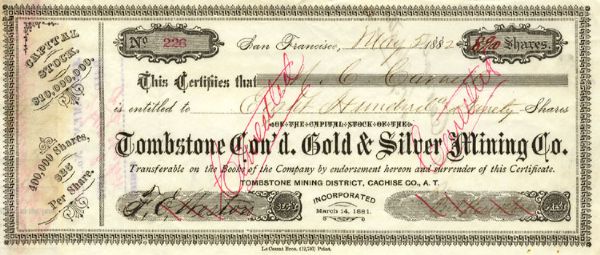 CAPITAL
STOCK.
$10,000,000.
400,000 Shares,
$25
Per Share.
No. 226
San Francisco, May 1882
890 Shares.
This Certifies that
is entitled to Eight Hundred & Ninety Shares
OF THE CAPITAL STOCK OF THE
Tombstone Con'd. Gold & Silver Mining Co.
Transferable on the Books of the Company by endorsement hereon and surrender of this Certificate.
TOMBSTONE MINING DISTRICT, CACHISE CO., A. T.
INCORPORATED
March 14, 1881.
Secty.
Prest.